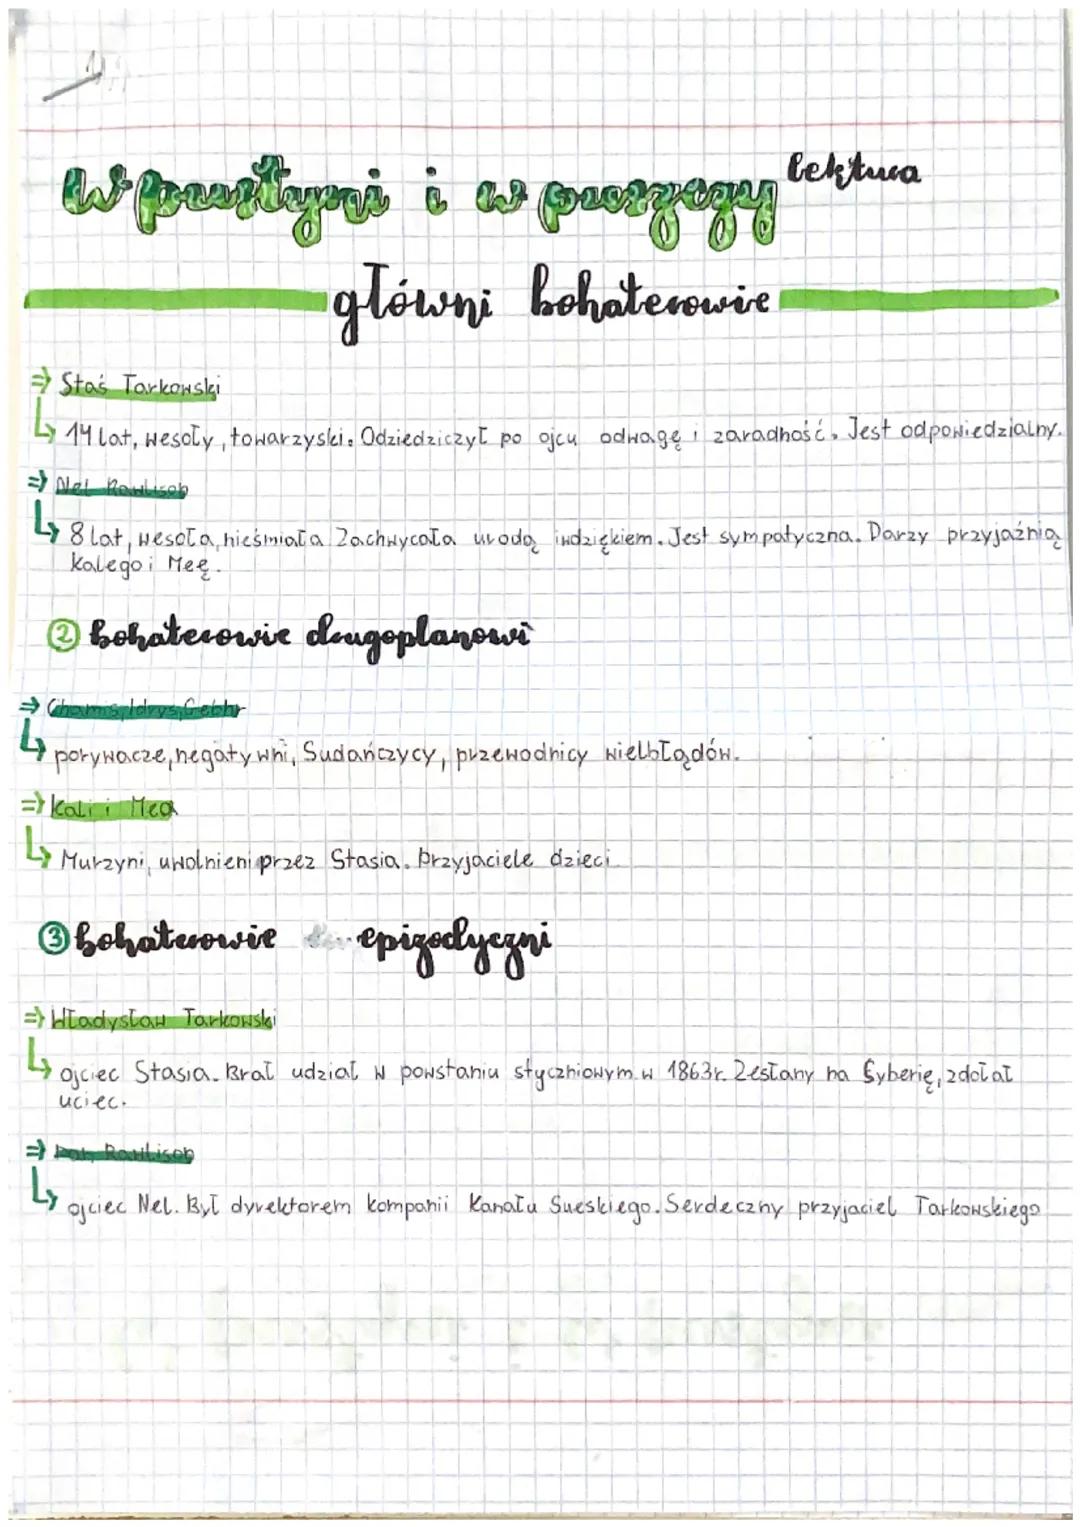 W pustyni i w puszczy lektura
główni bohaterowie
⇒ Staś Tarkowski
↳ 14 lat, wesoły, towarzyski. Odziedziczył po ojcu odwagę i zaradność. Jest odpowiedzialny.
⇒ Nel Rawlison
↳ 8 lat, wesoła, nieśmiała Zachwycała urodą i wdziękiem. Jest sympatyczna. Darzy przyjaźnią
Kalego i Meę.
② bohaterowie drugoplanowi
⇒ Chamis, Idrys, Gebhr
↳ porywacze, negatywni, Sudańczycy, przewodnicy wielbłądów.
⇒ Kali i Mea
↳ Murzyni, uwolnieni przez Stasia. Przyjaciele dzieci
③ bohaterowie epizodyczni
⇒ Władysław Tarkowski
↳ ojciec Stasia. Brał udział w powstaniu styczniowym w 1863r. Zesłany na Syberię, zdołał
uciec.
⇒ Pan Rawlison
↳ ojciec Nel. Był dyrektorem kompanii Kanału Sueskiego. Serdeczny przyjaciel Tarkowskiego